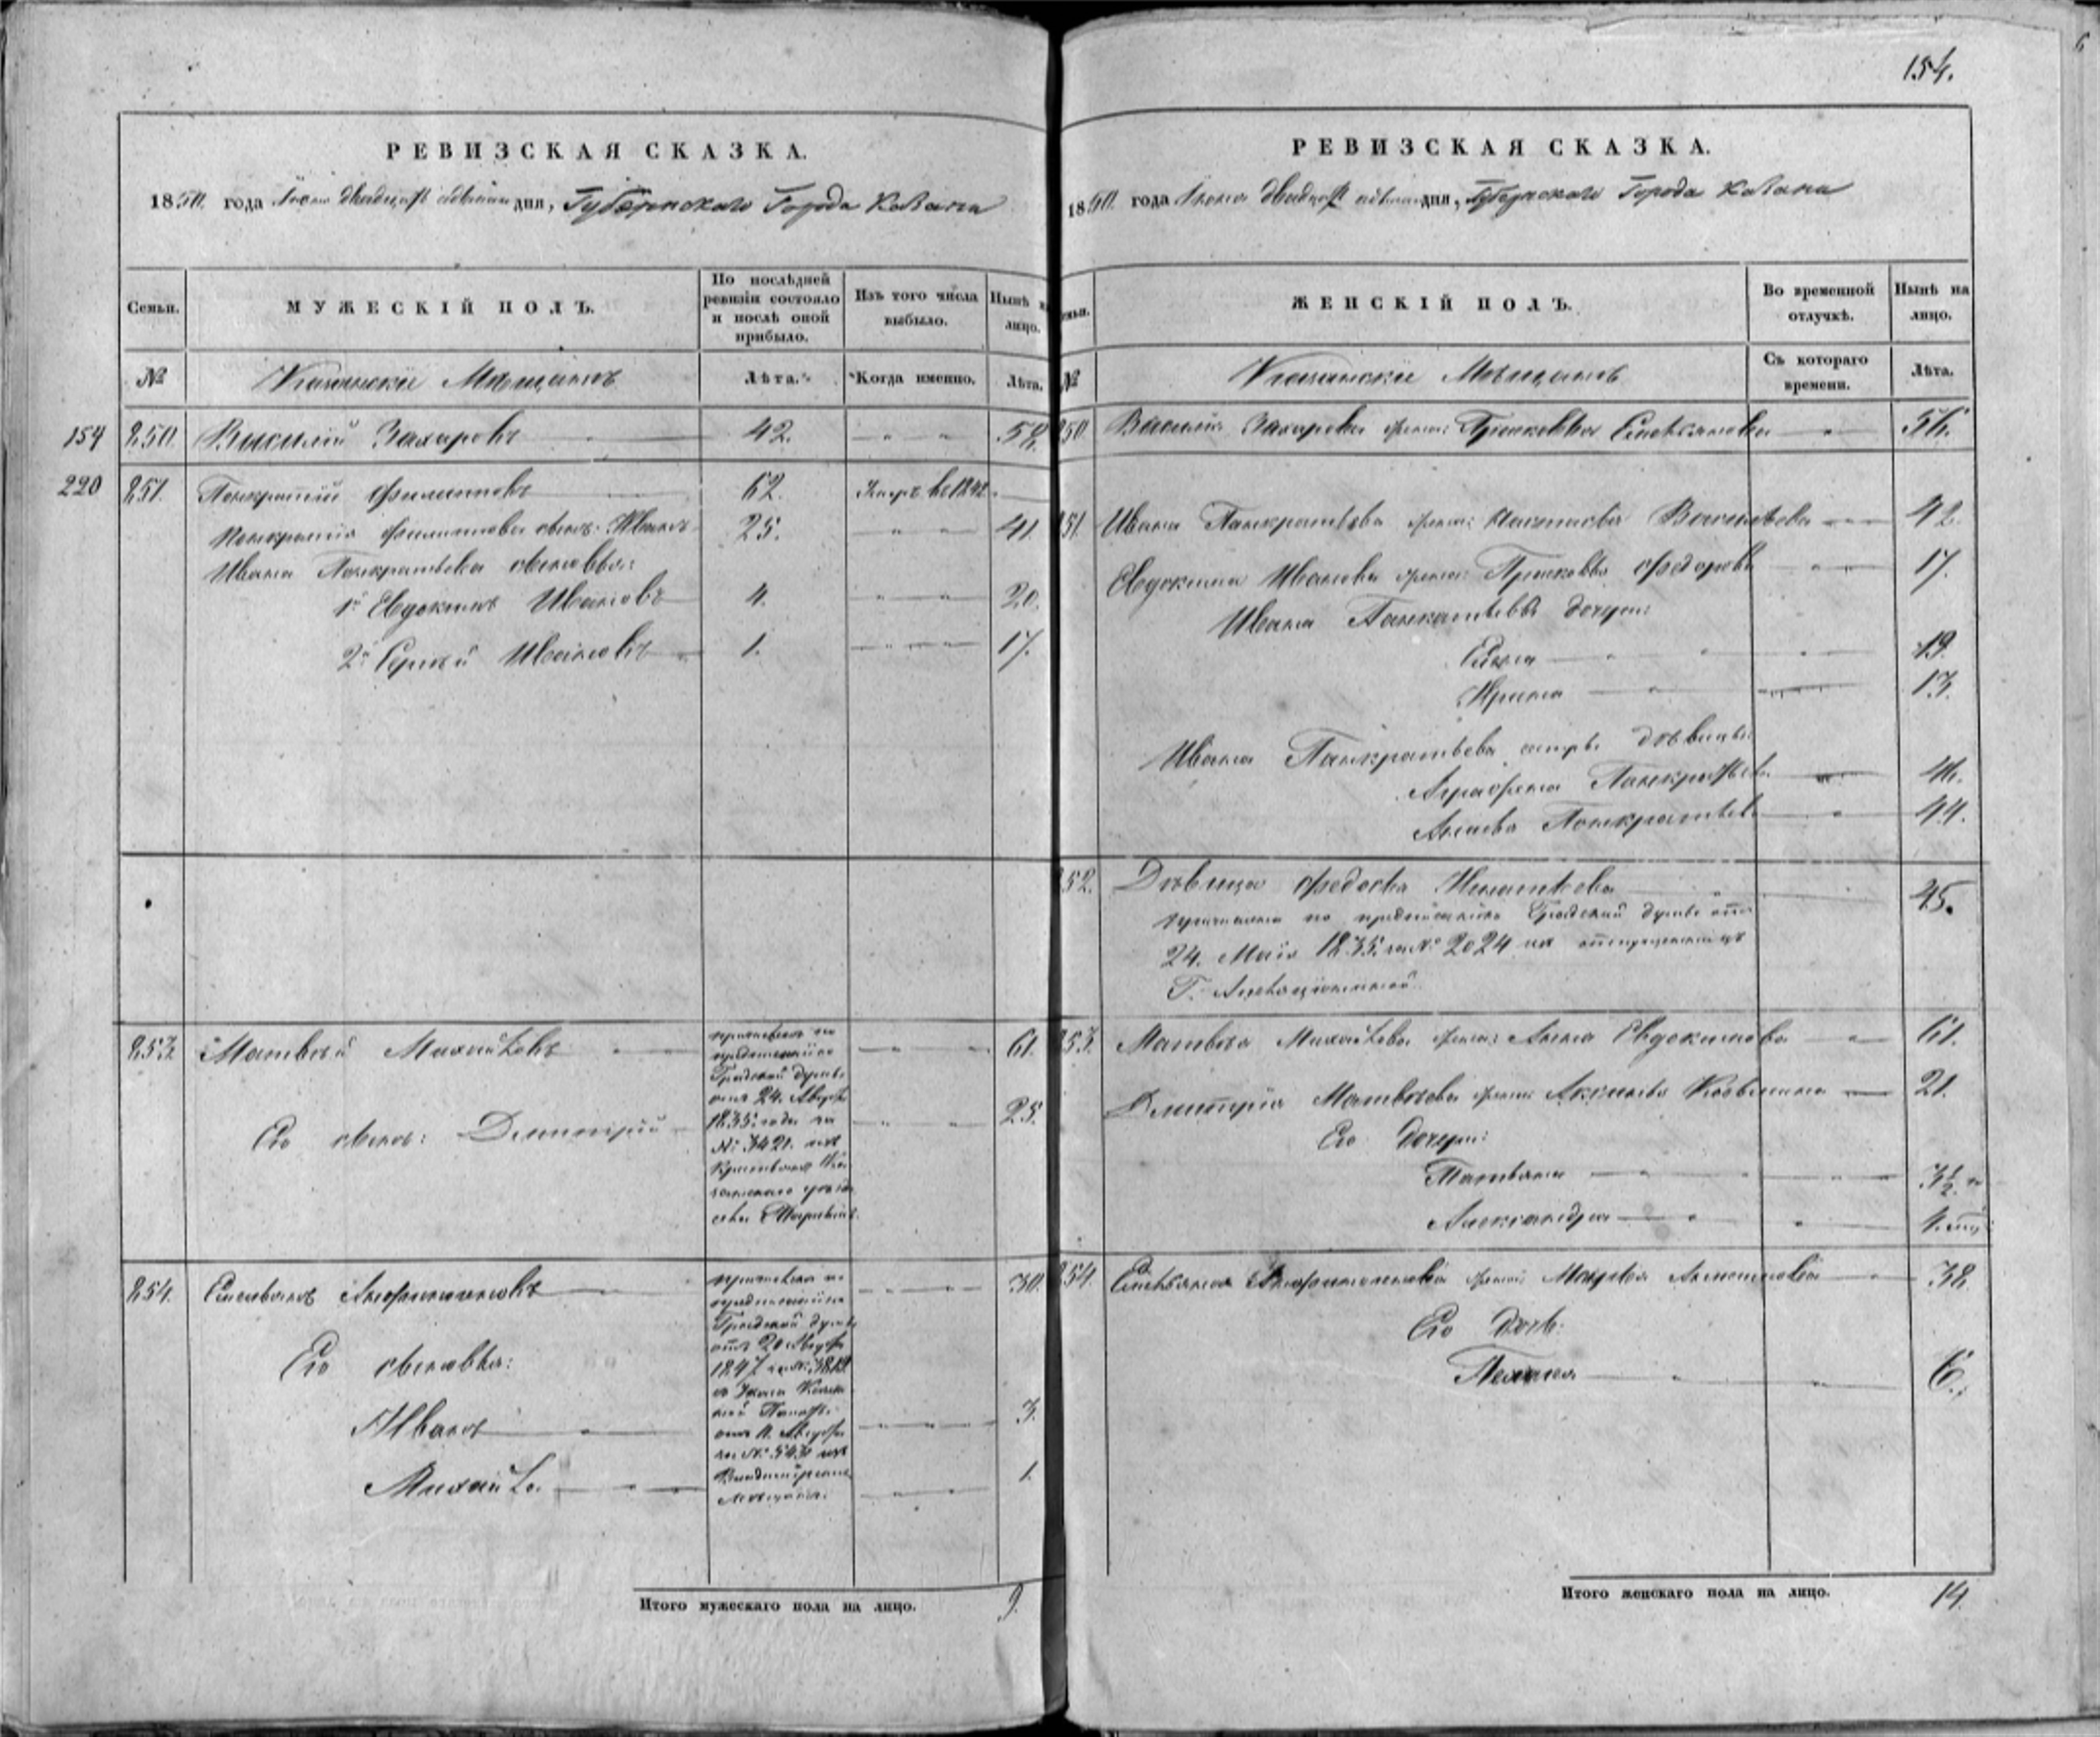 154.
РЕВИЗСКАЯ СКАЗКА.
1850. года Июня двадцать дня, Губернскаго Города Казани
Семьи.
МУЖЕСКІЙ ПОЛЪ.
По послѣдней ревизіи состояло и послѣ оной прибыло.
Изъ того числа выбыло.
Нынѣ на лицо.
№
Казанскіе Мѣщане
Лѣта.
Когда именно.
Лѣта.
154 850. Василий Захаровъ 42. 58.
220 851. Панкратій Филиповъ 62. Умеръ въ 1842.
Панкратія Филипова сынъ: Иванъ 25. 41.
Ивана Панкратьева сыновья:
1й Евдокимъ Ивановъ 4. 20.
2й Сергѣй Ивановъ 1. 17.
853. Матвѣй Михайловъ 61.
Его сынъ: Димитрій 25.
причисленъ по
предписанію
Градской думы
отъ 24. Августа
1835. года за
№ 3421. изъ
Крестьянъ Ка
занскаго уѣзда
села
854. Емельянъ 30.
Его сыновья:
Иванъ 3.
Михайло. 1.
причисленъ по
предписанію
Градской думы
отъ 20 Августа
1847. за №
Казен
ной Палаты
отъ 11. Августа
за № 5430 изъ
Владимірскихъ
Мѣщанъ.
Итого мужескаго пола на лицо. 9.
РЕВИЗСКАЯ СКАЗКА.
1850. года Июня двадцать дня, Губернскаго Города Казани
ЖЕНСКІЙ ПОЛЪ.
Во временной отлучкѣ.
Нынѣ на лицо.
№
Казанскіе Мѣщане
Съ котораго времени.
Лѣта.
850. Василія Захарова жена: Прасковья Емельянова 56.
851. Ивана Панкратьева жена: Настасья Васильева 42.
Евдокима Иванова жена: Прасковья Федорова 17.
Ивана Панкатьева дочери:
Елена 19.
Ирина 13.
Ивана Панкратьева сестры дѣвицы:
Аграфена Панкратьева 46.
Анисья Панкратьева 44.
852. Дѣвица Федосья Игнатьева 45.
причислена по предписанію Градской думы отъ
24. Маія 1835. за № 2024 изъ отпущенницъ
Г.
853. Матвѣя Михайлова жена: Анна Евдокимова 61.
Димитрія Матвѣева жена: Аксинья Козьмина 21.
Его дочери:
Татьяна 3½
Александра
854. Емельяна жена: Марья 38.
Его дочь:
Пелагея 6.
Итого женскаго пола на лицо. 14.